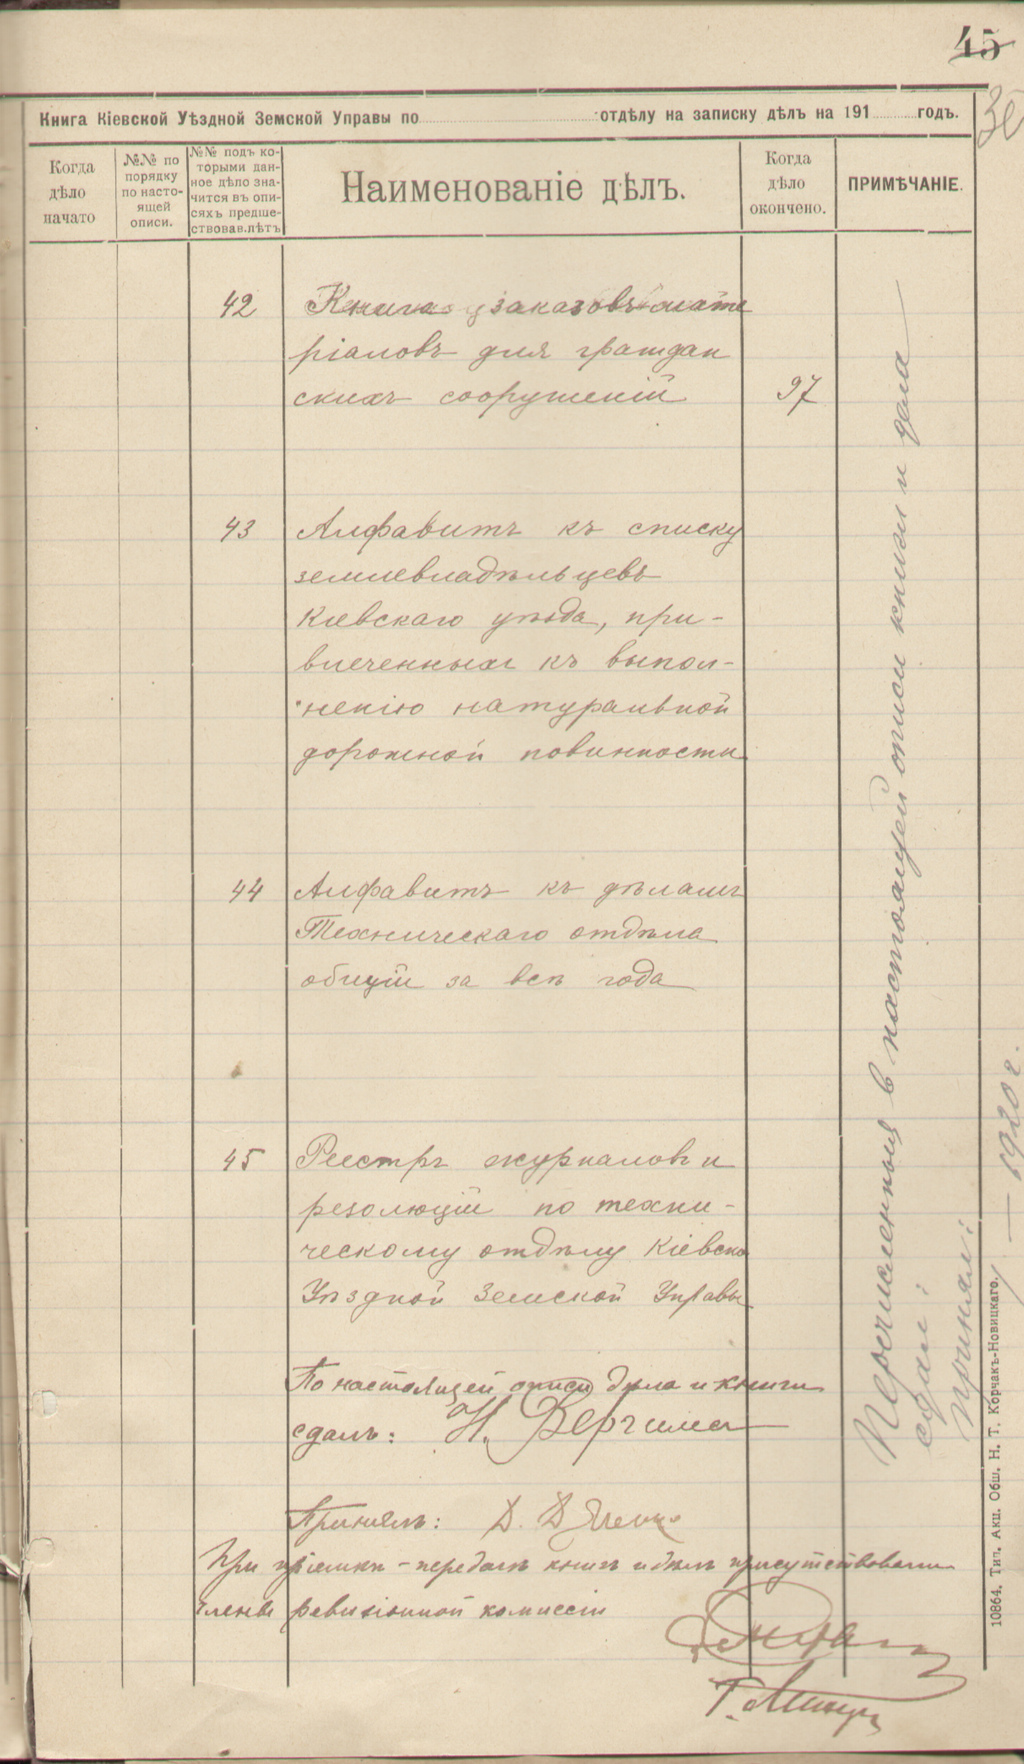 45
30
Книга Кіевской Уѣздной Земской Управы по отдѣлу на записку дѣлъ на 191 годъ.
Когда дѣло начато
№№ по порядку по насто-ящей описи.
№№ подъ ко-торыми дан-ное дѣло зна-чится въ опи-сяхъ предше-ствовав.лѣтъ
Наименованіе дѣлъ.
Когда дѣло окончено.
ПРИМѢЧАНІЕ.
42 Книга заказовъ мате
ріаловъ для граждан
скихъ сооруженій 97
43 Алфавитъ къ списку
землевладѣльцевъ
Кіевскаго уѣзда, при-
влеченныхъ къ выпол-
ненію натуральной
дорожной повинности
44 Алфавитъ къ дѣламъ
Техническаго отдѣла
общій за всѣ года
45 Реестръ журналовъ и
резолюцій по техни-
ческому отдѣлу Кіевско
Уѣздной Земской Управы
По настоящей описи дѣла и книги
сдалъ: Н.
Принялъ: Д.
При пріемкѣ-передачѣ книгъ и дѣлъ присутствовали
члены ревизіонной комиссіи
Г.
Перечисленныя в настоящей описи книги и дела
сдал:
принял:
— 1920 г.
10864. Тип. Акц. Общ. Н. Т. Корчакъ-Новицкаго.